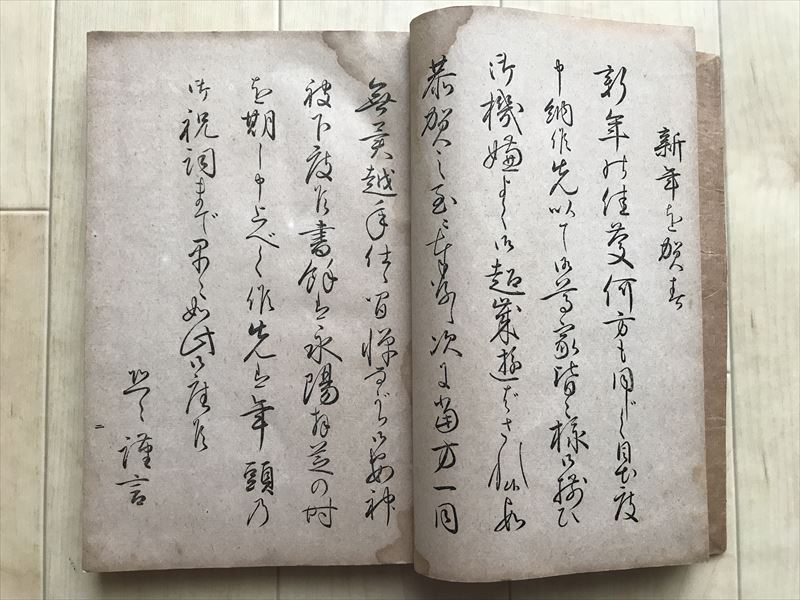 新年を賀す
新年の佳慶何方も同じく目出度
申納候先以て御尊家皆々様御揃ひ
御機嫌よく御超歳遊ばされ
恭賀之至に次に当方一同
無異越年仕候間憚ながら御安神
被下度候書餘は永陽拝芝の時
を期し申上べく候先は年頭の
御祝詞まで早々如此御座候
恐々謹言